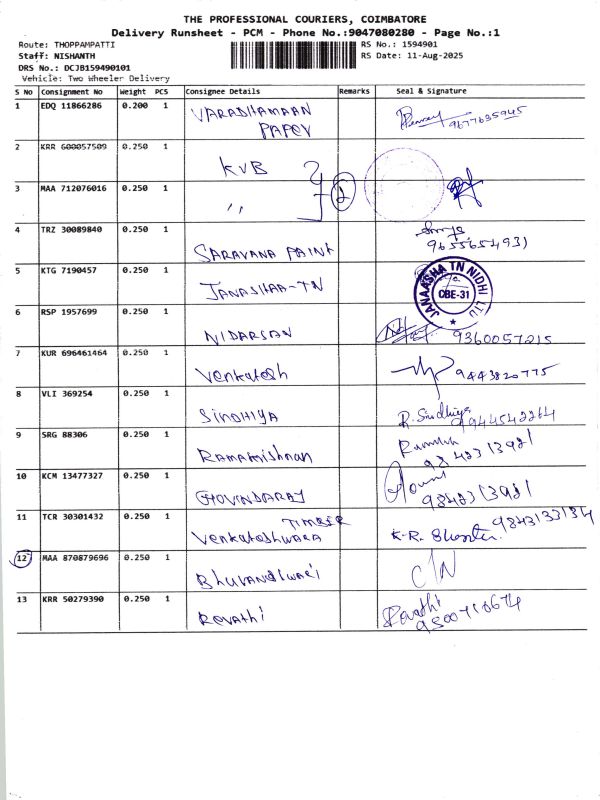 THE PROFESSIONAL COURIERS, COIMBATORE
Delivery Runsheet - PCM - Phone No.:9047080280 - Page No.:1
Route: THOPPAMPATTI
Staff: NISHANTH
DRS No.: DCJB159490101
Vehicle: Two Wheeler Delivery
RS No.: 1594901
RS Date: 11-Aug-2025
S No Consignment No Weight PCS Consignee Details Remarks Seal & Signature
1 EDQ 11866286 0.200 1 VARADHAMAAN
PAPER 9677635945
2 KRR 600057509 0.250 1 KVB
3 MAA 712076016 0.250 1 ,, 2
4 TRZ 30089840 0.250 1 SARAVANA PAINT 9655654931
5 KTG 7190457 0.250 1 JANASHAA-TN JANAASHA TN NIDHI LTD
CBE-31
6 RSP 1957699 0.250 1 NIDARSAN 9360057215
7 KUR 696461464 0.250 1 Venkatesh 9443820775
8 VLI 369254 0.250 1 SINDHIYA R. Sindhiya
9944542264
9 SRG 88306 0.250 1 RAMAKRISHNAN
9842313981
10 KCM 13477327 0.250 1 GOVINDARAJ
9842313981
11 TCR 30301432 0.250 1 TIMBER
Venkateshwara K.R.
12 MAA 870879696 0.250 1 Bhuvaneswari C/N
13 KRR 50279390 0.250 1 Revathi Revathi